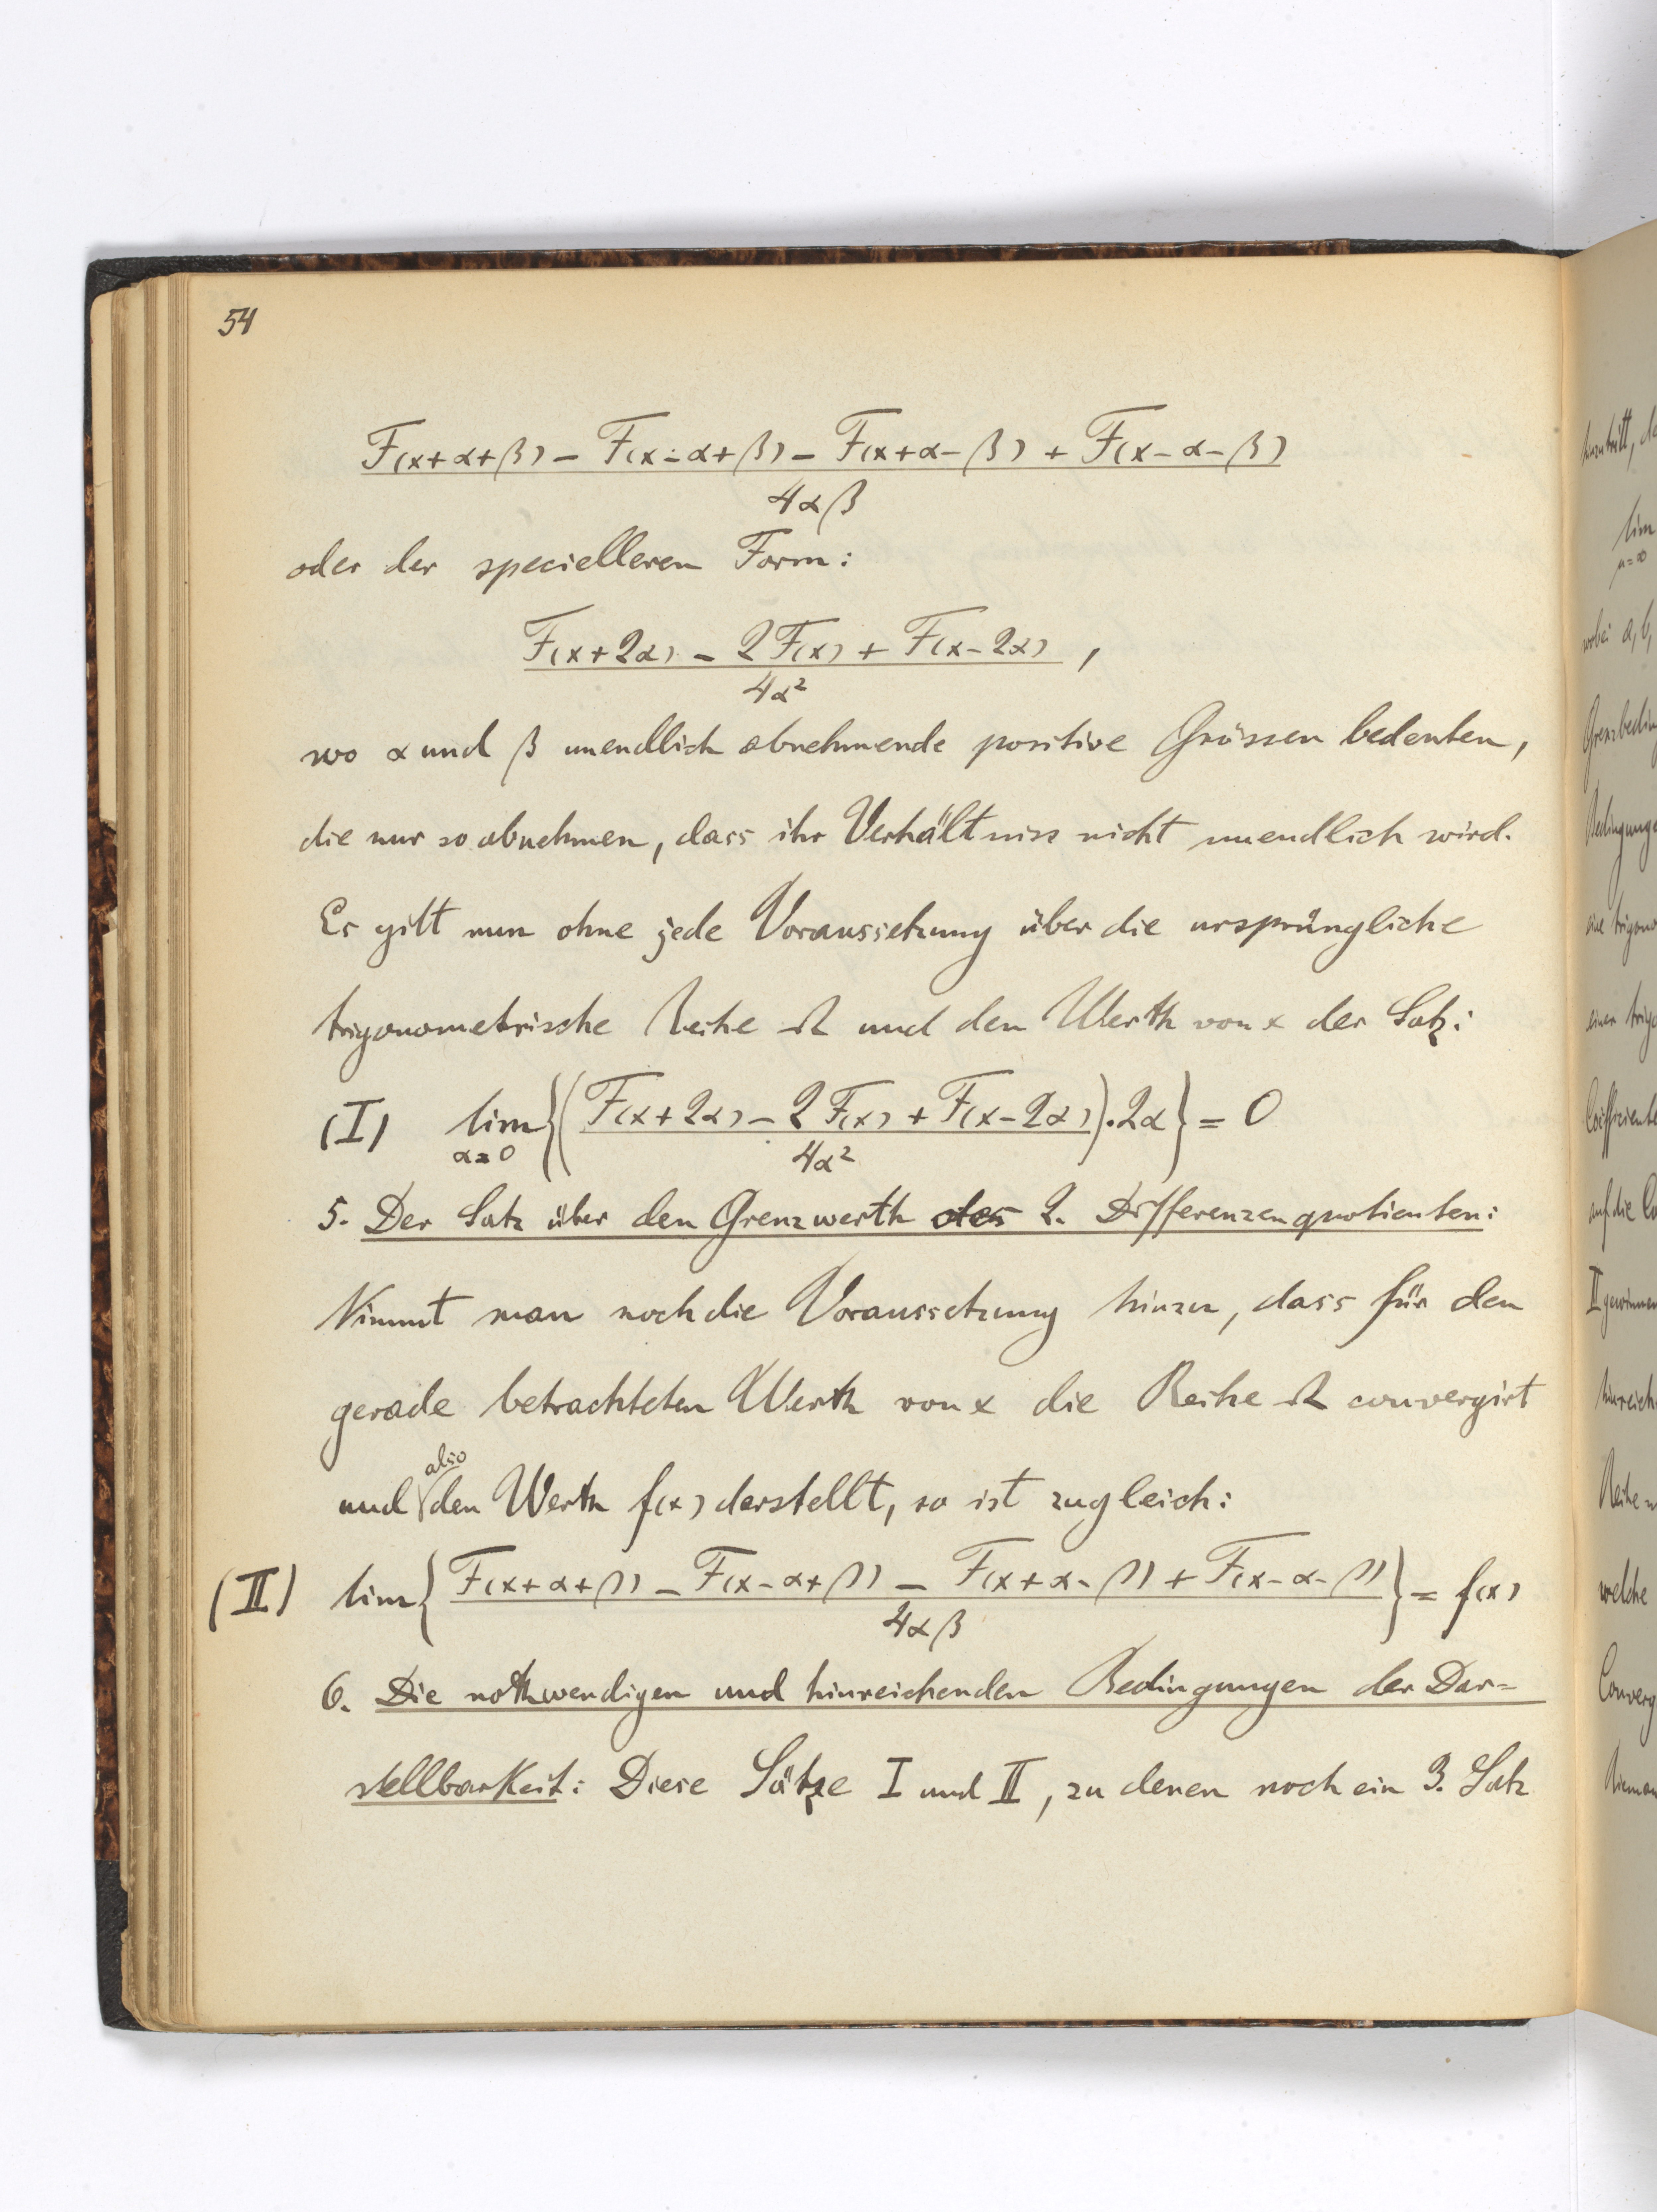 54
F(x+α+β) − F(x−α+β) − F(x+α−β) + F(x−α−β)
4αβ
oder der specielleren Form:
F(x+2α) − 2F(x) + F(x−2α) ,
4α²
wo α und β unendlich abnehmende positive Grössen bedeuten,
die nur so abnehmen, dass ihr Verhältniss nicht unendlich wird.
Es gilt nun ohne jede Voraussetzung über die ursprüngliche
trigonometrische Reihe Ω und den Werth von x der Satz:
(I) lim {(F(x+2α) − 2F(x) + F(x−2α)).2α} = 0
α=0 4α²
5. Der Satz über den Grenzwerth des 2. Differenzenquotienten:
Nimmt man noch die Voraussetzung hinzu, dass für den
gerade betrachteten Werth von x die Reihe Ω convergirt
also
und den Werth f(x) darstellt, so ist zugleich:
(II) lim { F(x+α+β) − F(x−α+β) − F(x+α−β) + F(x−α−β) } = f(x)
4αβ
6. Die nothwendigen und hinreichenden Bedingungen der Dar=
stellbarkeit: Diese Sätze I und II, zu denen noch ein 3. Satz
lim
n=∞
II
welche